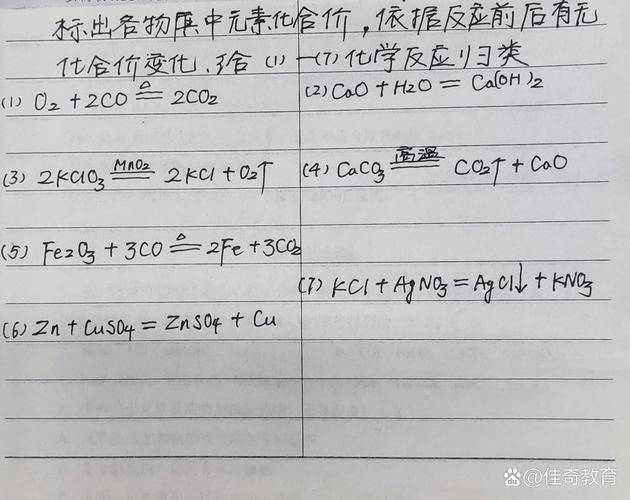 标出各物质中元素化合价,依据反应前后有无
化合价变化,给(1)—(7)化学反应归类
(1) O₂ + 2CO ≜ 2CO₂
(2) CaO + H₂O = Ca(OH)₂
(3) 2KClO₃ MnO₂ == 2KCl + O₂↑
(4) CaCO₃ 高温 == CO₂↑ + CaO
(5) Fe₂O₃ + 3CO ≜ 2Fe + 3CO₂
(7) KCl + AgNO₃ = AgCl↓ + KNO₃
(6) Zn + CuSO₄ = ZnSO₄ + Cu
@佳奇教育